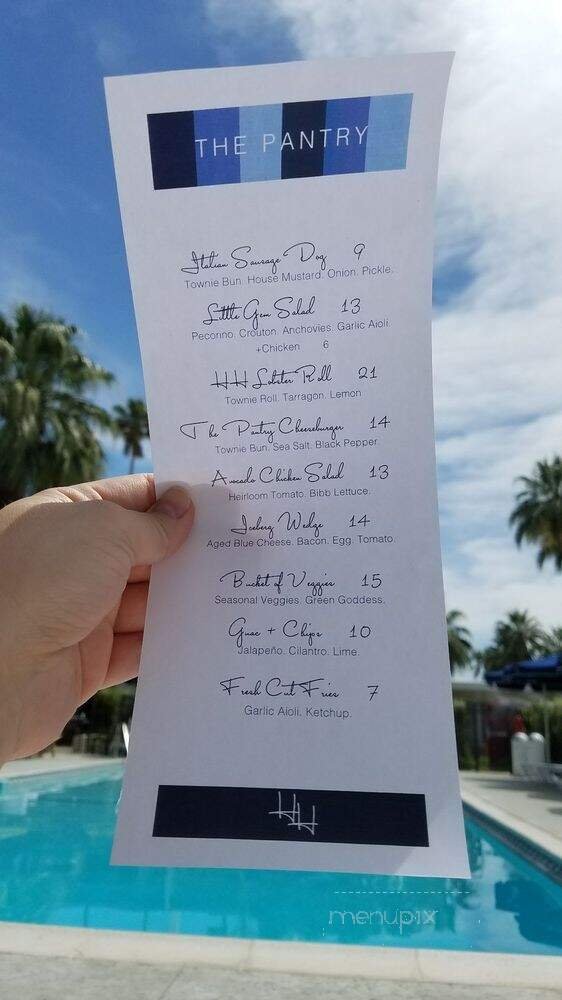 THE PANTRY
Italian Sausage Dog 9
Townie Bun. House Mustard. Onion. Pickle.
Little Gem Salad 13
Pecorino. Crouton. Anchovies. Garlic Aioli
+Chicken 6
HH Lobster Roll 21
Townie Roll. Tarragon. Lemon
The Pantry Cheeseburger 14
Townie Bun. Sea Salt. Black Pepper.
Avocado Chicken Salad 13
Heirloom Tomato. Bibb Lettuce.
Iceberg Wedge 14
Aged Blue Cheese. Bacon. Egg. Tomato.
Bucket of Veggies 15
Seasonal Veggies. Green Goddess.
Guac + Chips 10
Jalapeño. Cilantro. Lime.
Fresh Cut Fries 7
Garlic Aioli. Ketchup.
HH
menupix